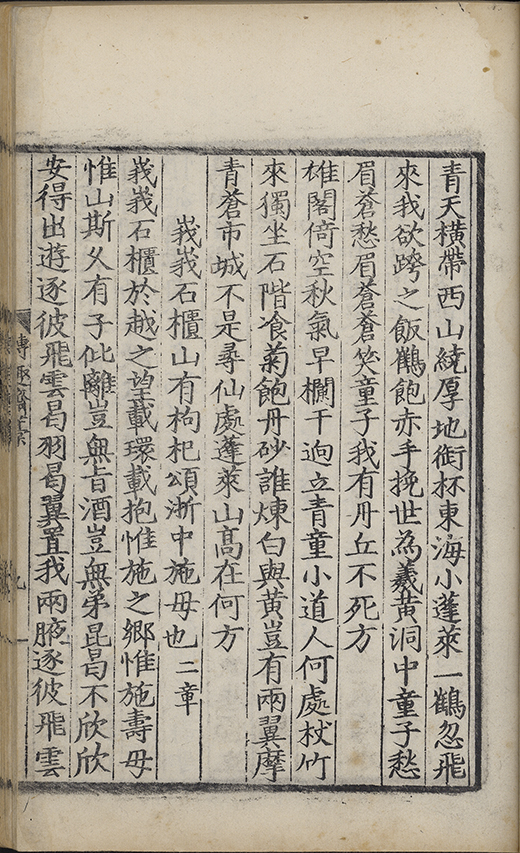 青天橫帶西山繞厚地銜杯東海小蓬萊一鶴忽飛
來我欲跨之飯鶴飽赤手挽世為羲黃洞中童子愁
眉蒼愁眉蒼蒼笑童子我有丹丘不死方
雄閣倚空秋氣早欄干逈立青童小道人何處杖竹
來獨坐石階飡菊飽丹砂誰煉白與黃豈有兩翼摩
青蒼市城不是尋仙處蓬萊山高在何方
峩峩石櫃山有枸杞頌浙中施母也二章
峩峩石櫃於越之望載環載抱惟施之鄉惟施壽母
惟山斯久有子仳離豈無旨酒豈無弟昆曷不欣欣
安得出遊逐彼飛雲曷羽曷翼置我兩腋逐彼飛雲
九